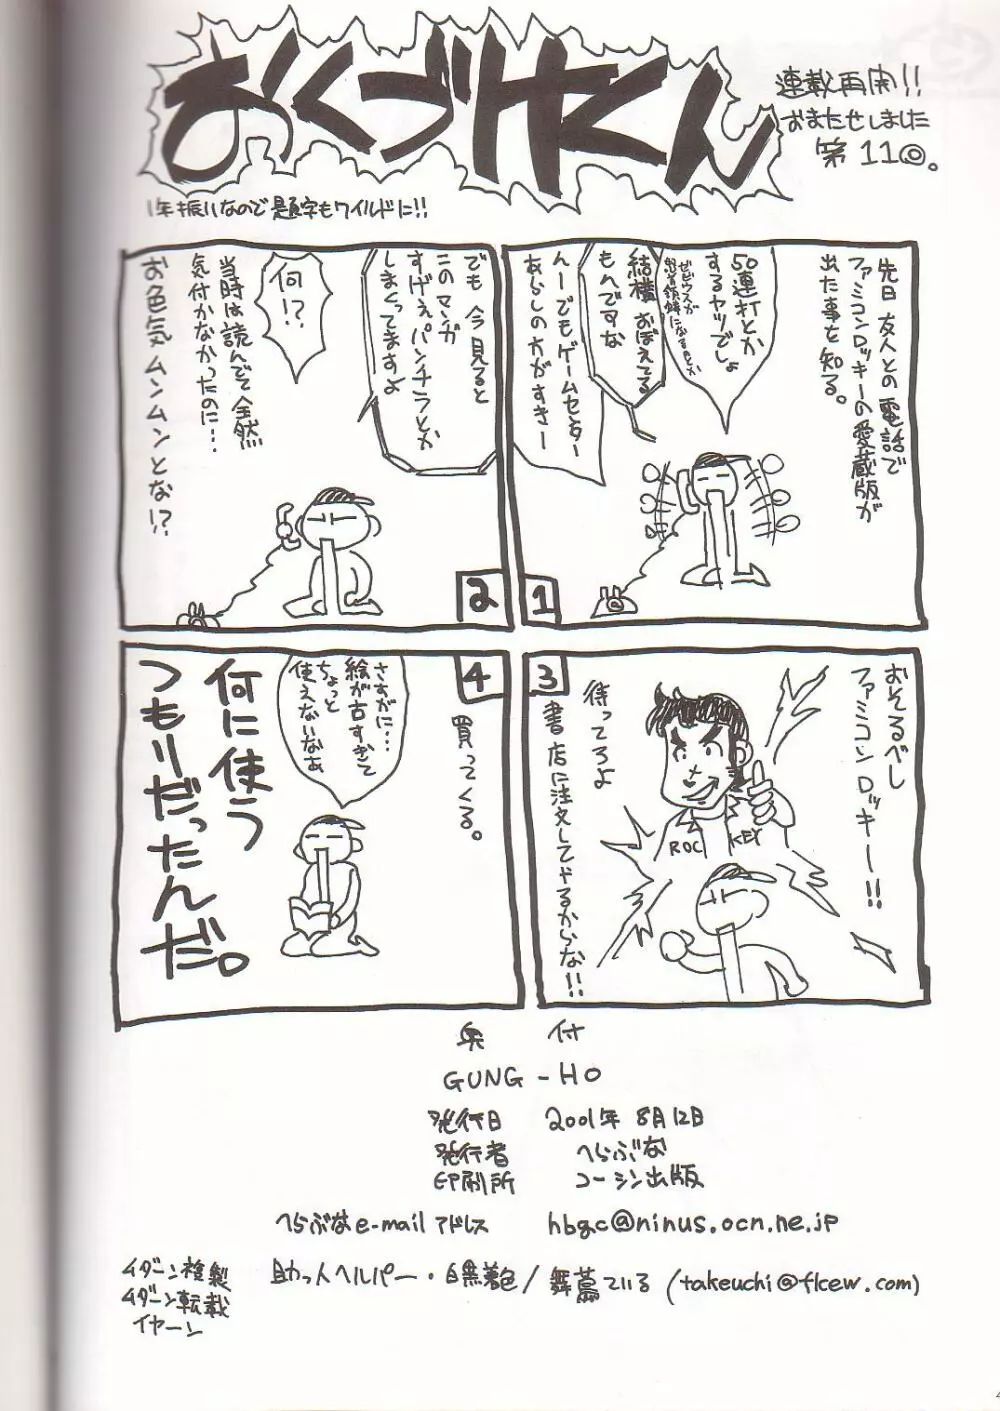 おくづけくん
連載再開!!
おまたせしました
第11回。
1年振りなので題字もワイルドに!!
先日友人との電話で
ファミコンロッキーの愛蔵版が
出た事を知る。
50連打とか
するヤツでしょ
ゼビウスが
結構おぼえてる
もんですな
んーでもゲームセンター
あらしの方がすきー
1
でも今見ると
このマンガ
すげぇパンチラとか
しまくってますよ
何!?
当時は読んでて全然
気付かなかったのに…
お色気ムンムンとな!?
2
おそるべし
ファミコンロッキー!!
ROCKEY
待ってろよ
書店に注文してやるからな!!
3
買ってくる。
さすがに…
絵が古すぎて
ちょっと
使えないなぁ
何に使う
つもりだったんだ。
4
奥付
GUNG-HO
発行日 2001年8月12日
発行者 へらぶな
印刷所 コーシン出版
へらぶなe-mailアドレス hbgc@ninus.ocn.ne.jp
助っ人ヘルパー・白黒着色/舞蔦ている(takeuchi@flcew.com)
イダーン複製
イダーン転載
イヤーン